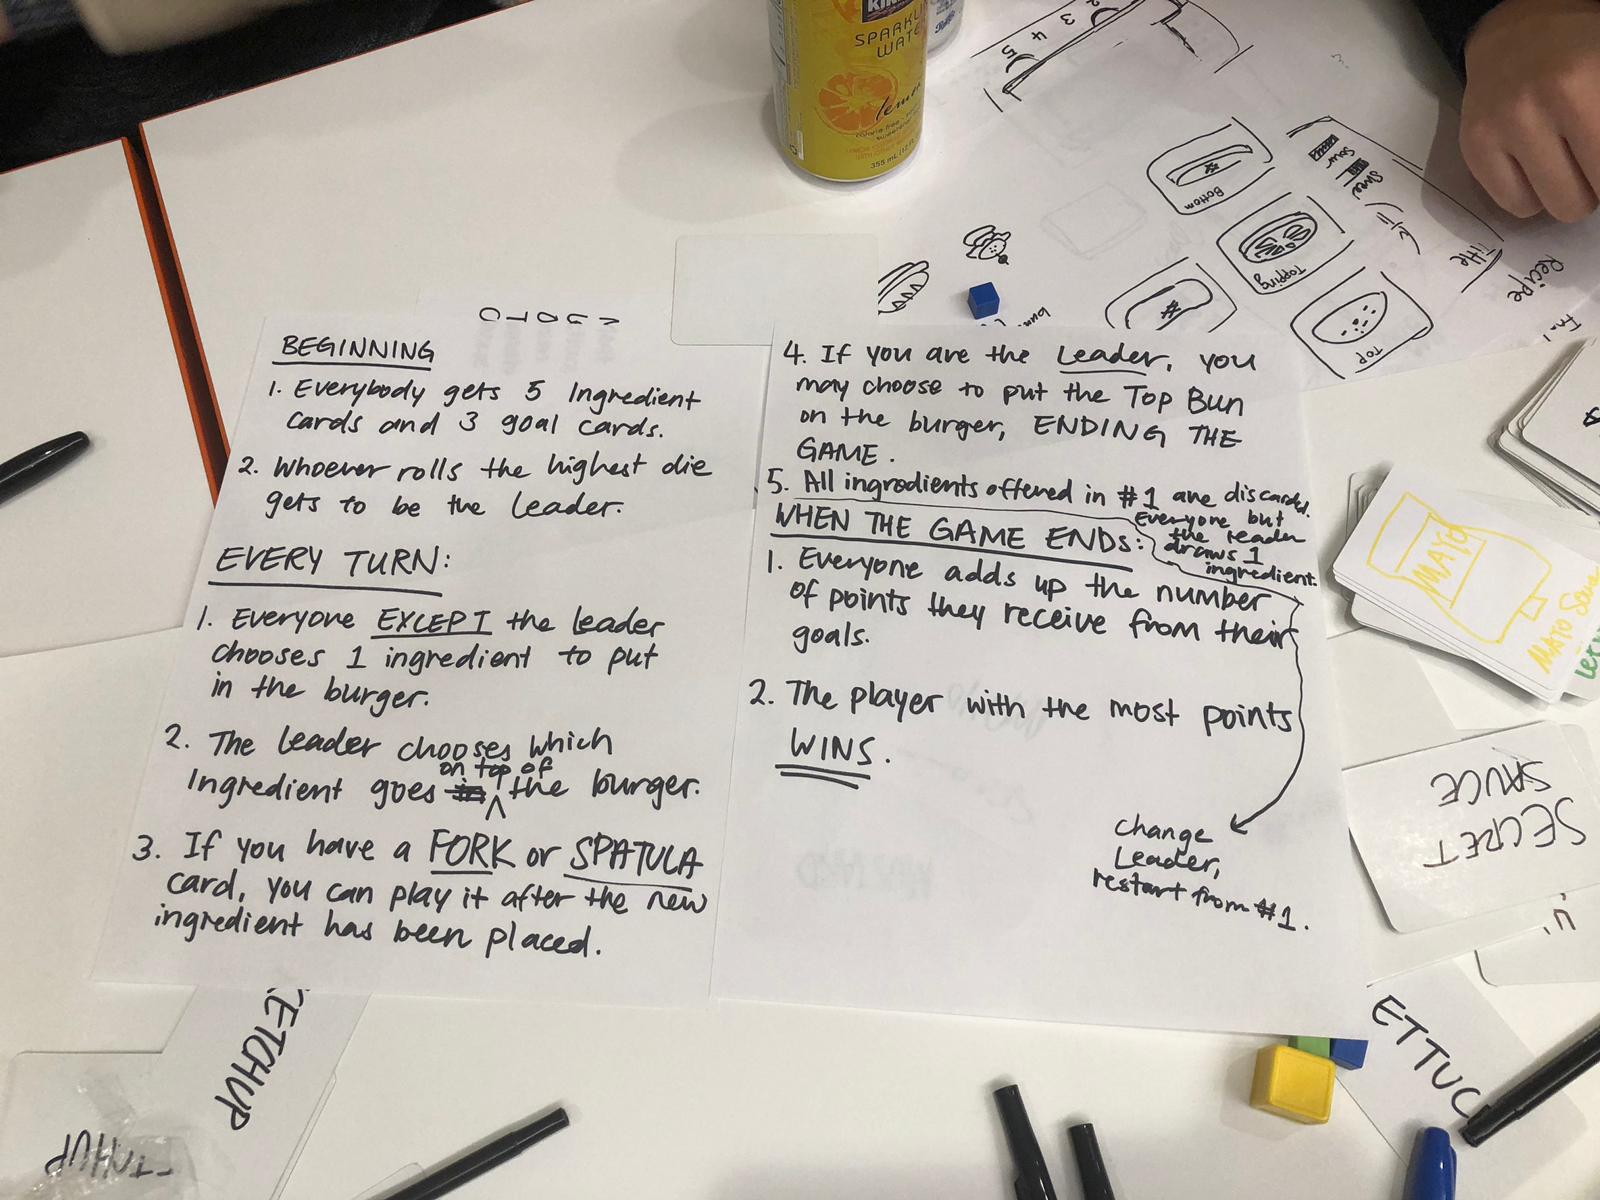 BEGINNING
1. Everybody gets 5 Ingredient
cards and 3 goal cards.
2. Whoever rolls the highest die
gets to be the leader.
EVERY TURN:
1. Everyone EXCEPT the leader
chooses 1 ingredient to put
in the burger.
2. The leader chooses which
on top of
Ingredient goes the burger.
3. If you have a FORK or SPATULA
card, you can play it after the new
ingredient has been placed.
4. If you are the Leader, you
may choose to put the Top Bun
on the burger, ENDING THE
GAME.
5. All ingredients offered in #1 are discarded.
Everyone but
the leader
draws 1
ingredient.
WHEN THE GAME ENDS:
1. Everyone adds up the number
of points they receive from their
goals.
2. The player with the most points
WINS.
change
Leader,
restart from #1.
SPARKLING
WATER
lemon
355 mL
2
3
4
5
Bottom
Topping
Top
Sour
Title
Recipe
MAYO
MAYO
SECRET
SAUCE
ETTUC
KETCHUP